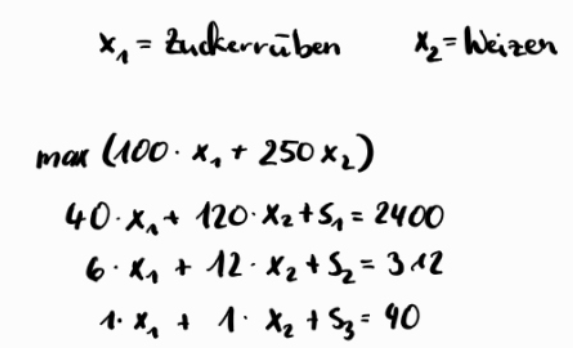 x₁ = Zuckerrüben x₂ = Weizen
max (100 · x₁ + 250 x₂)
40 · x₁ + 120 · x₂ + S₁ = 2400
6 · x₁ + 12 · x₂ + S₂ = 312
1 · x₁ + 1 · x₂ + S₃ = 40